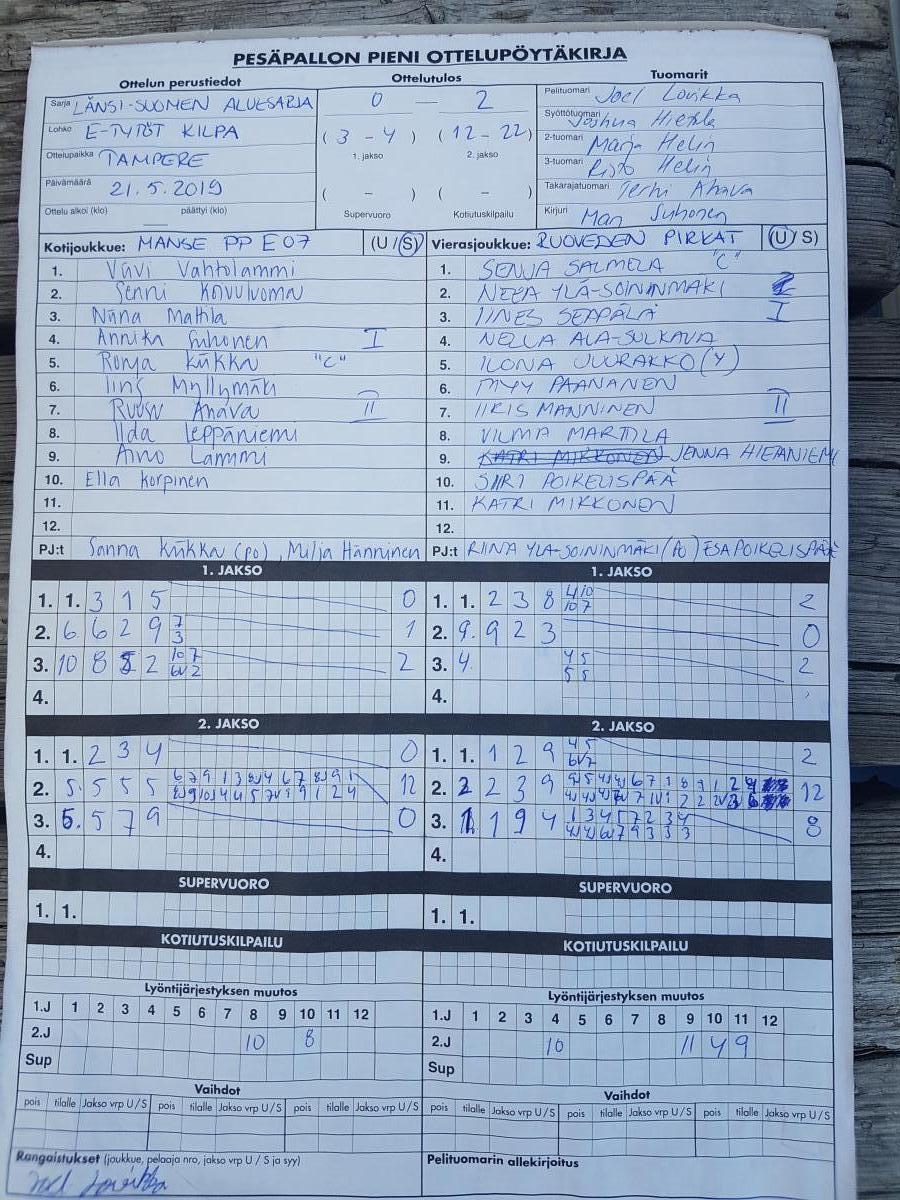 PESÄPALLON PIENI OTTELUPÖYTÄKIRJA
Ottelun perustiedot
Sarja LÄNSI-SUOMEN ALUESARJA
Lohko E-TYTÖT KILPA
Ottelupaikka TAMPERE
Päivämäärä 21.5.2019
Ottelu alkoi (klo) päättyi (klo)
Ottelutulos
0 — 2
( 3 - 4 ) ( 12 - 22 )
1. jakso 2. jakso
( - ) ( - )
Supervuoro Kotiutuskilpailu
Tuomarit
Pelituomari Joel Lovikka
Syöttötuomari Joshua
2-tuomari Marja Helin
3-tuomari Risto Helin
Takarajatuomari Terhi Ahava
Kirjuri Mari Suhonen
Kotijoukkue: MANSE PP E07 (U/S)
1. Viivi Vahtolammi
2. Senni Koivuluoma
3. Niina Mattila
4. Annika Suhonen I
5. Ronja Kiikka "C"
6. Iiris Myllymäki
7. Ruusu Ahava II
8. Iida Leppäniemi
9. Aino Lammi
10. Ella Korpinen
11.
12.
PJ:t Sanna Kiikka (po), Milja Hänninen
Vierasjoukkue: RUOVEDEN PIRKAT (U/S)
1. SENJA SALMELA "C"
2. NEEA YLÄ-SOININMÄKI
3. IINES SEPPÄLÄ I
4. NELLA ALA-SULKAVA
5. ILONA JUURAKKO (Y)
6. MYY PAANANEN
7. IIRIS MANNINEN II
8. VILMA MARTTILA
9. KATRI MIKKONEN JENNA HIETANIEMI
10. SIIRI POIKELISPÄÄ
11. KATRI MIKKONEN
12.
PJ:t RIINA YLÄ-SOININMÄKI (PO) ESA POIKELISPÄÄ
1. JAKSO
1. 1. 3 1 5 0
2. 6 6 2 9 7 3 1
3. 10 8 2 10 7 6V 2 2
4.
1. JAKSO
1. 1. 2 3 8 4 10 10 7 2
2. 9. 9 2 3 0
3. 4. 4 5 5 5 2
4.
2. JAKSO
1. 1. 2 3 4 0
2. 5. 5 5 5 12
3. 5. 5 7 9 0
4.
2. JAKSO
1. 1. 1 2 9 4 5 6V 7 2
2. 2 2 3 9 12
3. 1 1 9 4 8
4.
SUPERVUORO
1. 1.
SUPERVUORO
1. 1.
KOTIUTUSKILPAILU
KOTIUTUSKILPAILU
Lyöntijärjestyksen muutos
1.J 1 2 3 4 5 6 7 8 9 10 11 12
2.J 10 8
Sup
Lyöntijärjestyksen muutos
1.J 1 2 3 4 5 6 7 8 9 10 11 12
2.J 10 11 4 9
Sup
Vaihdot
pois tilalle Jakso vrp U/S pois tilalle Jakso vrp U/S pois tilalle Jakso vrp U/S
Vaihdot
pois tilalle Jakso vrp U/S pois tilalle Jakso vrp U/S pois tilalle Jakso vrp U/S
Rangaistukset (joukkue, pelaaja nro, jakso vrp U / S ja syy)
Pelituomarin allekirjoitus